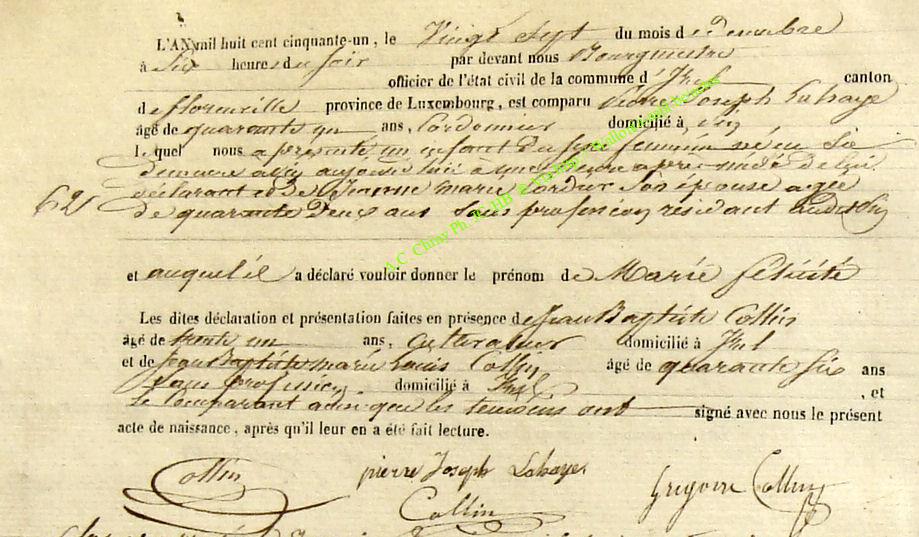 L'AN mil huit cent cinquante-un, le Vingt sept du mois de décembre
à Six heures du soir par devant nous Bourgmestre
officier de l'état civil de la commune d'Izel canton
de florenville province de Luxembourg, est comparu Pierre Joseph Lahaye
âgé de quarante un ans, Cordonnier domicilié à izel
lequel nous a présenté un enfant du sexe féminin né en Sa
demeure à izel aujourd'hui à heure après midi de lui
62 déclarant et de Jeanne marie Son épouse agée
de quarante Deux ans Sans profession résidant audit Izel
et auquel il a déclaré vouloir donner le prénom de Marie felicité
Les dites déclaration et présentation faites en présence de Jean Baptiste Collin
âgé de trente un ans, cultivateur domicilié à Izel
et de Jean Baptiste marie Louis Collin âgé de quarante Six ans
Sans profession domicilié à Izel , et
le Comparant ainsi que les temoins ont signé avec nous le présent
acte de naissance, après qu'il leur en a été fait lecture.
Collin pierre Joseph Lahaye Grégoire Collin
Collin
A.C. Chiny Ph. HB